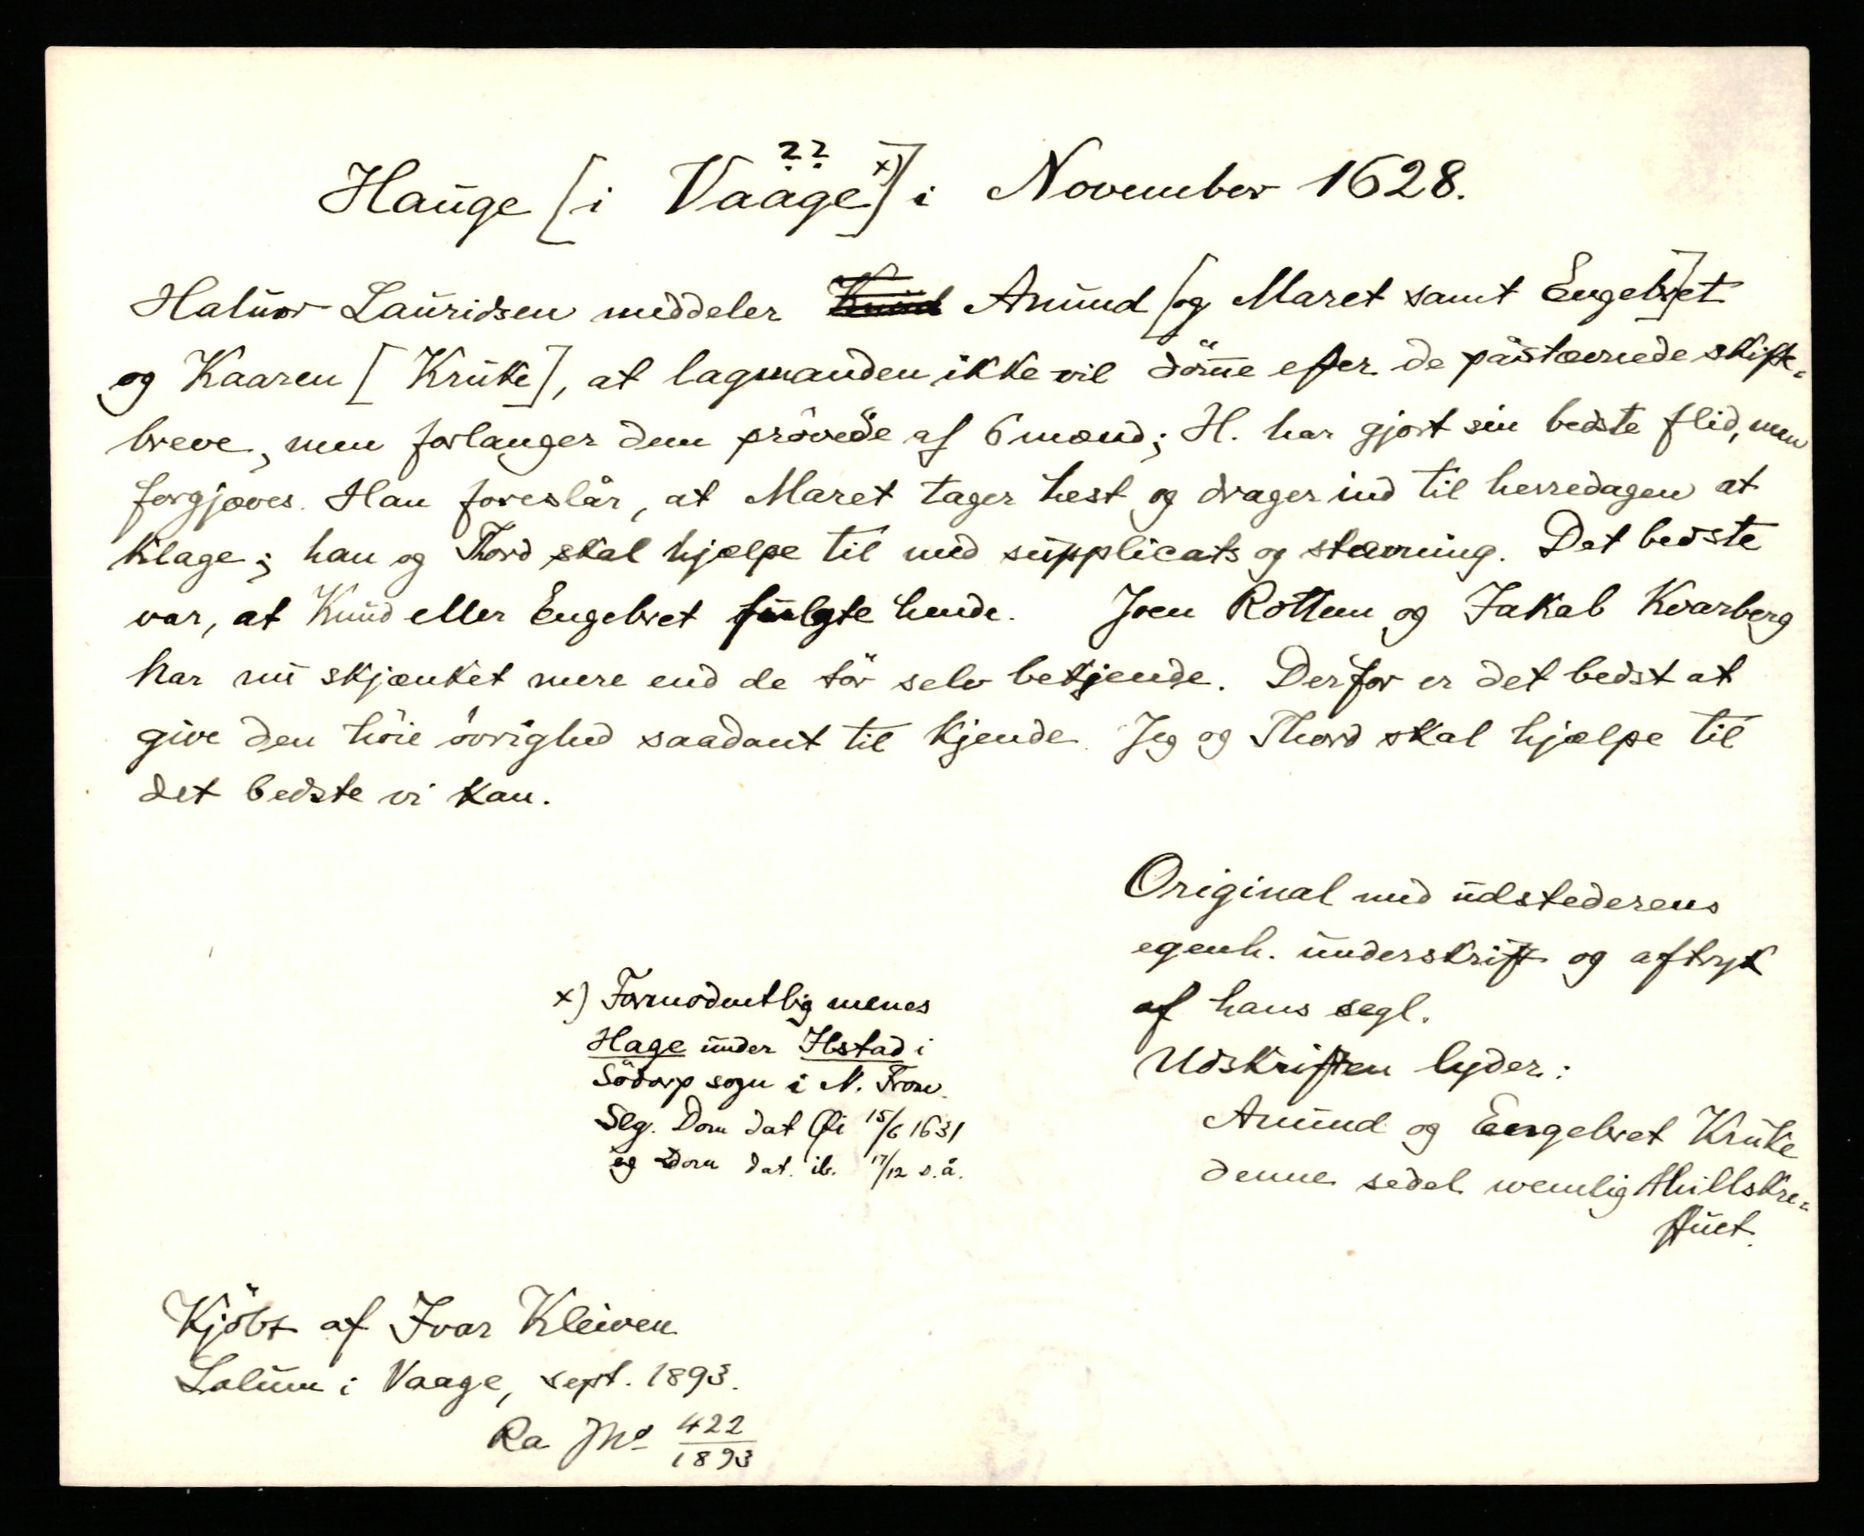 ??
Hauge [i Vaage x)] i November 1628.
Haluor Lauridsen meddeler Knud Amund [og Maret samt Engebret]
og Kaaren [Kruke], at lagmanden ikke vil dömme efter de påstævnede skifte-
breve, men forlanger dem prövede af 6 mænd; H. har gjort sin bedste flid, men
forgjæves. Han foreslår, at Maret tager hest og drager ind til herredagen at
klage; han og Thord skal hjælpe til med supplicats og stævning. Det bedste
var, at Knud eller Engebret fulgte hende. Joen Rottem og Jakob Kvarberg
har nu skjænket mere end de tör selv bekjende. Derfor er det bedst at
give den höie övrighed saadant til kjende. Jeg og Thord skal hjælpe til
det bedste vi kan.
Original med udstederens
egenh. underskrift og aftryk
af hans segl.
Udskriften lyder:
Amund og Engebret Kruke
denne sedel wenlig thillskre-
ffuet.
x) Formodentlig menes
Hage under Ilstad i
Södorp sogn i N. Fron.
Slg. Dom dat Öi 15/6 1631
og Dom dat. ib. 17/12 s.å.
Kjöbt af Ivar Kleiven
Lalum i Vaage, sept. 1893.
Ra Jno 422
1893